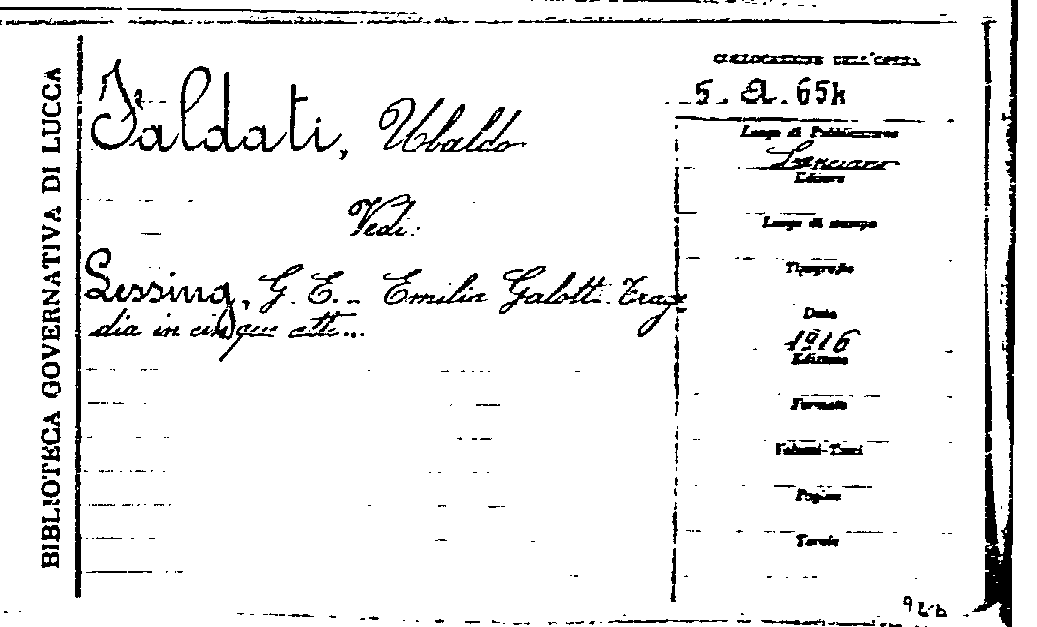 BIBLIOTECA GOVERNATIVA DI LUCCA
Faldati, Ubaldo
Vedi:
Lessing, G. E. - Emilia Galotti. Trage
dia in cinque atti...
COLLOCAZIONE DELL'OPERA
5. A. 65h
Luogo di Pubblicazione
Lanciano
Editore
Luogo di stampa
Tipografia
Data
1916
Edizione
Formato
Volumi-Tomi
Pagine
Tavole